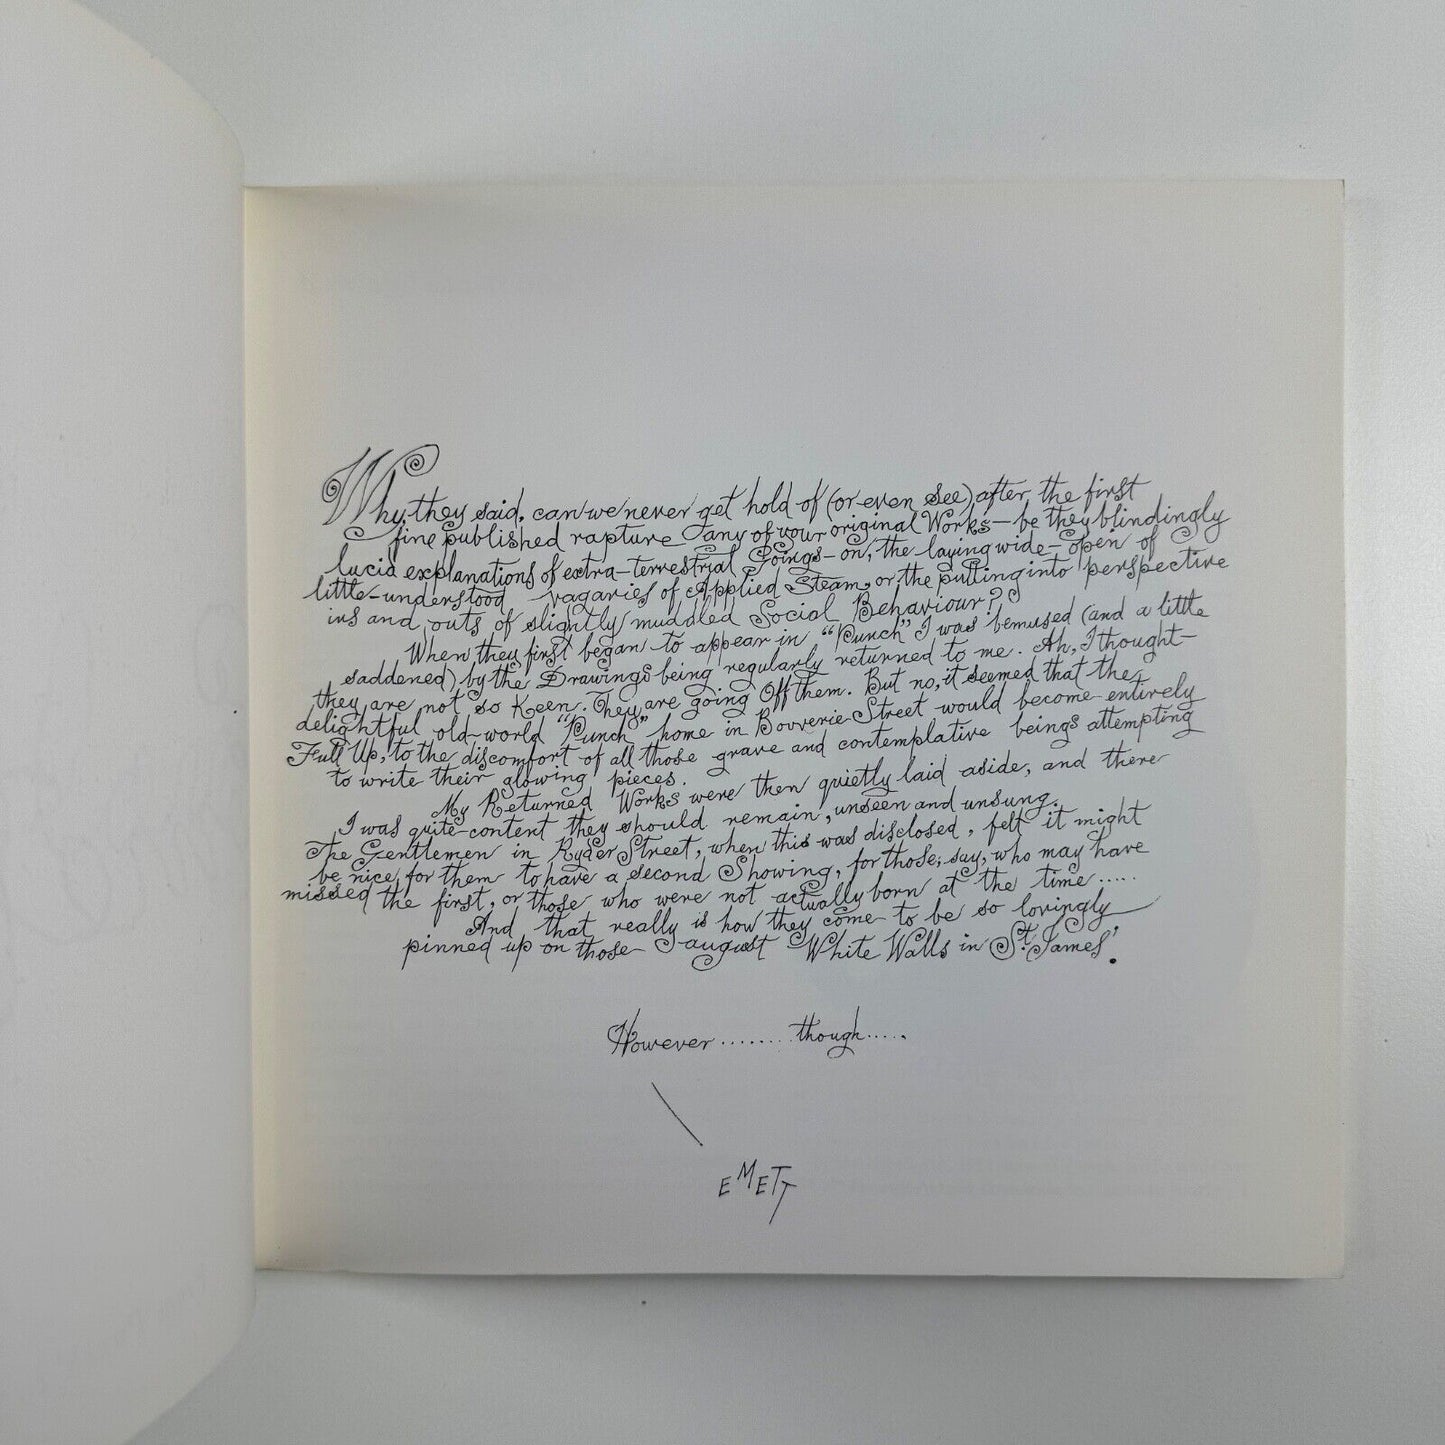 Why, they said, can we never get hold of (or even See) after the first
fine published rapture any of your original Works — be they blindingly
lucid explanations of extra-terrestrial Goings-on, the laying wide-open of
little-understood vagaries of Applied Steam, or the putting into perspective
ins and outs of slightly muddled Social Behaviour?
When they first began to appear in "Punch" I was bemused (and a little
saddened) by the Drawings being regularly returned to me. Ah, I thought—
they are not so Keen. They are going Off them. But no, it seemed that the
delightful old-world "Punch" home in Bouverie Street would become entirely
Full Up, to the discomfort of all those grave and contemplative beings attempting
to write their glowing pieces.
My Returned Works were then quietly laid aside, and there
I was quite content they should remain, unseen and unsung.
The Gentlemen in Ryder Street, when this was disclosed, felt it might
be nice for them to have a second Showing, for those, say, who may have
missed the first, or those who were not actually born at the time.....
And that really is how they come to be so lovingly
pinned up on those august White Walls in St. James'.
However ....... though.....
EMETT